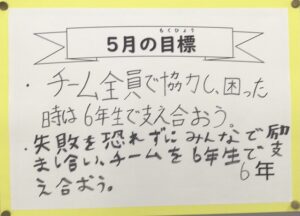 もくひょう
5月の目標
・チーム全員で協力し、困った
時は6年生で支え合おう。
・失敗を恐れずにみんなで励
まし合い、チームを6年生で支
え合おう。
6年